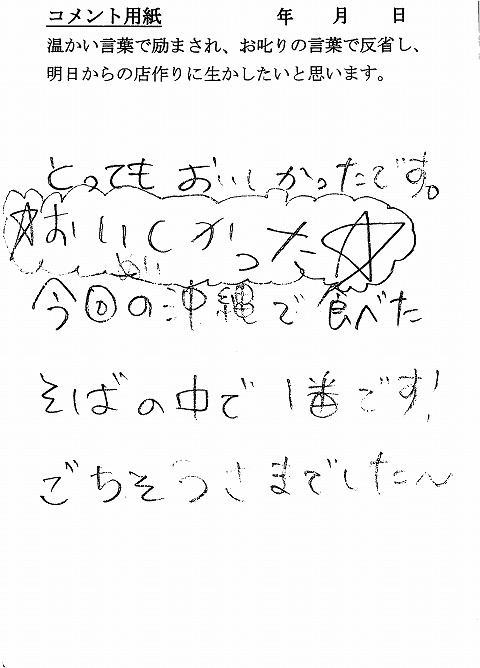 コメント用紙 年 月 日
温かい言葉で励まされ、お叱りの言葉で反省し、
明日からの店作りに生かしたいと思います。
とってもおいしかったです。
☆おいしかった☆
今回の沖縄で食べた
そばの中で1番です!
ごちそうさまでした〜